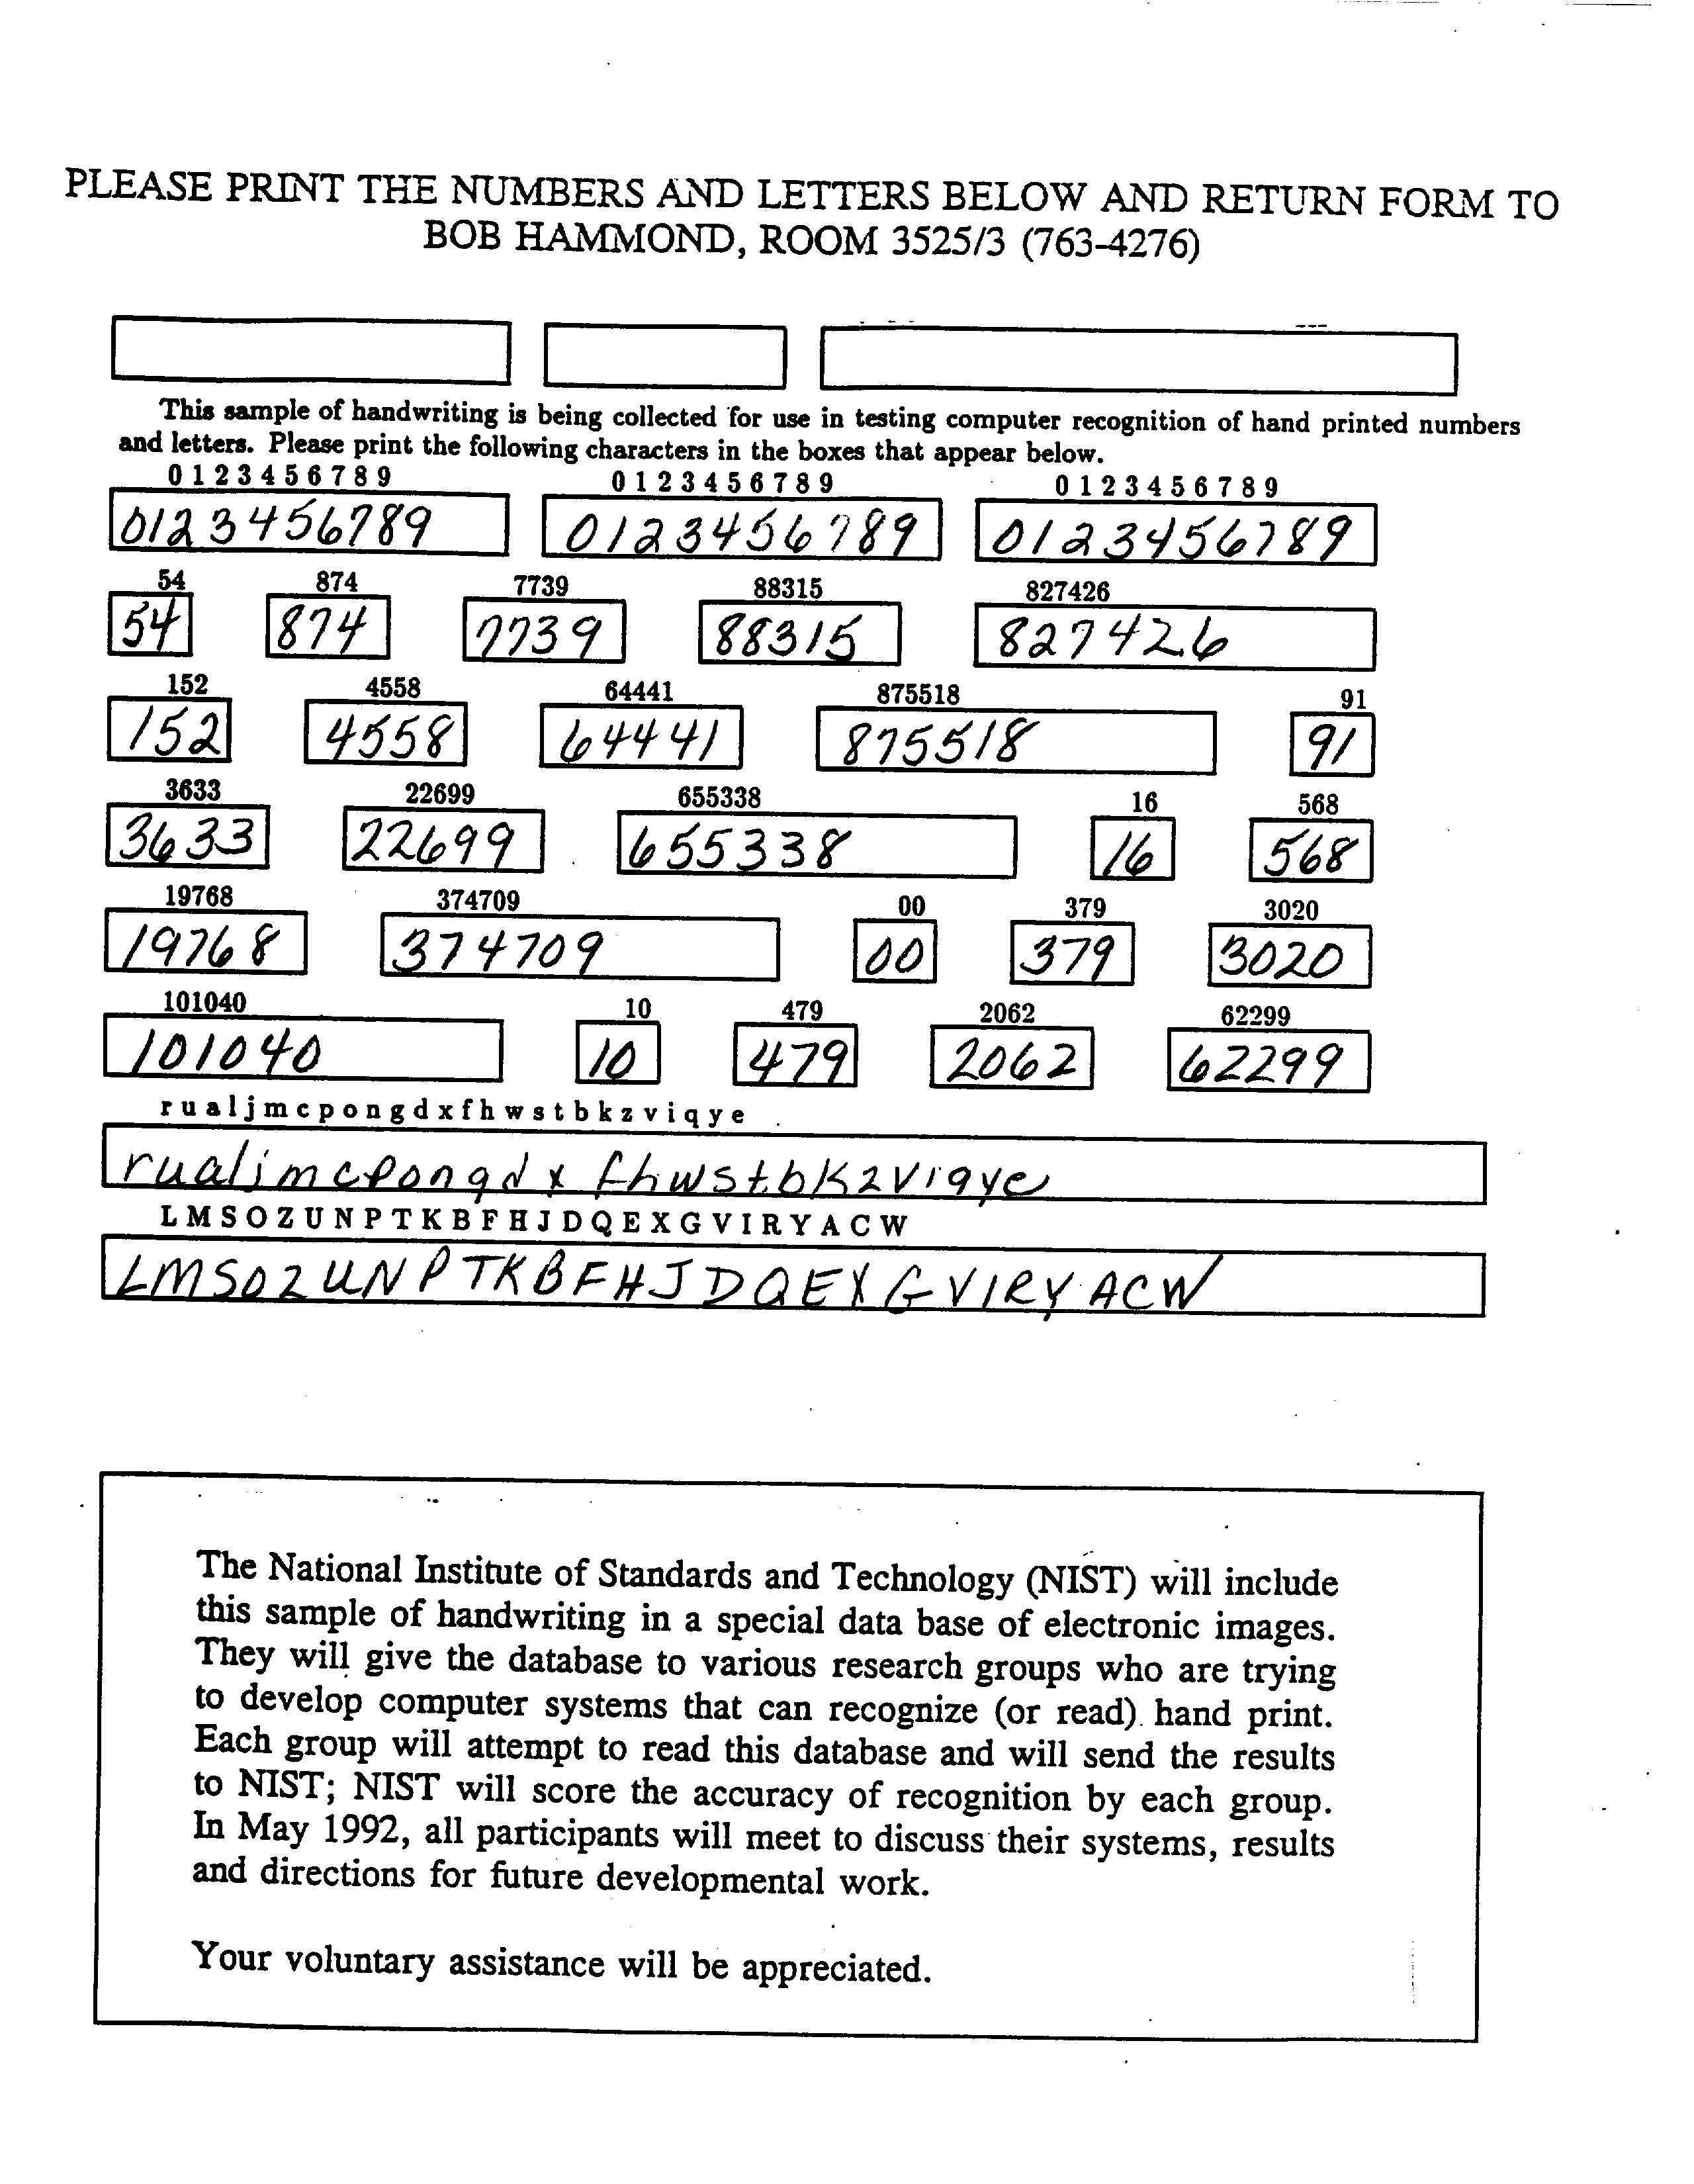 PLEASE PRINT THE NUMBERS AND LETTERS BELOW AND RETURN FORM TO
BOB HAMMOND, ROOM 3525/3 (763-4276)
This sample of handwriting is being collected for use in testing computer recognition of hand printed numbers
and letters. Please print the following characters in the boxes that appear below.
0 1 2 3 4 5 6 7 8 9 0 1 2 3 4 5 6 7 8 9 0 1 2 3 4 5 6 7 8 9
0123456789 0123456789 0123456789
54 874 7739 88315 827426
54 874 7739 88315 827426
152 4558 64441 875518 91
152 4558 64441 875518 91
3633 22699 655338 16 568
3633 22699 655338 16 568
19768 374709 00 379 3020
19768 374709 00 379 3020
101040 10 479 2062 62299
101040 10 479 2062 62299
r u a l j m c p o n g d x f h w s t b k z v i q y e
rualjmcpongdxfhwstbkzviqye
L M S O Z U N P T K B F H J D Q E X G V I R Y A C W
LMSOZUNPTKBFHJDQEXGVIRYACW
The National Institute of Standards and Technology (NIST) will include
this sample of handwriting in a special data base of electronic images.
They will give the database to various research groups who are trying
to develop computer systems that can recognize (or read) hand print.
Each group will attempt to read this database and will send the results
to NIST; NIST will score the accuracy of recognition by each group.
In May 1992, all participants will meet to discuss their systems, results
and directions for future developmental work.
Your voluntary assistance will be appreciated.